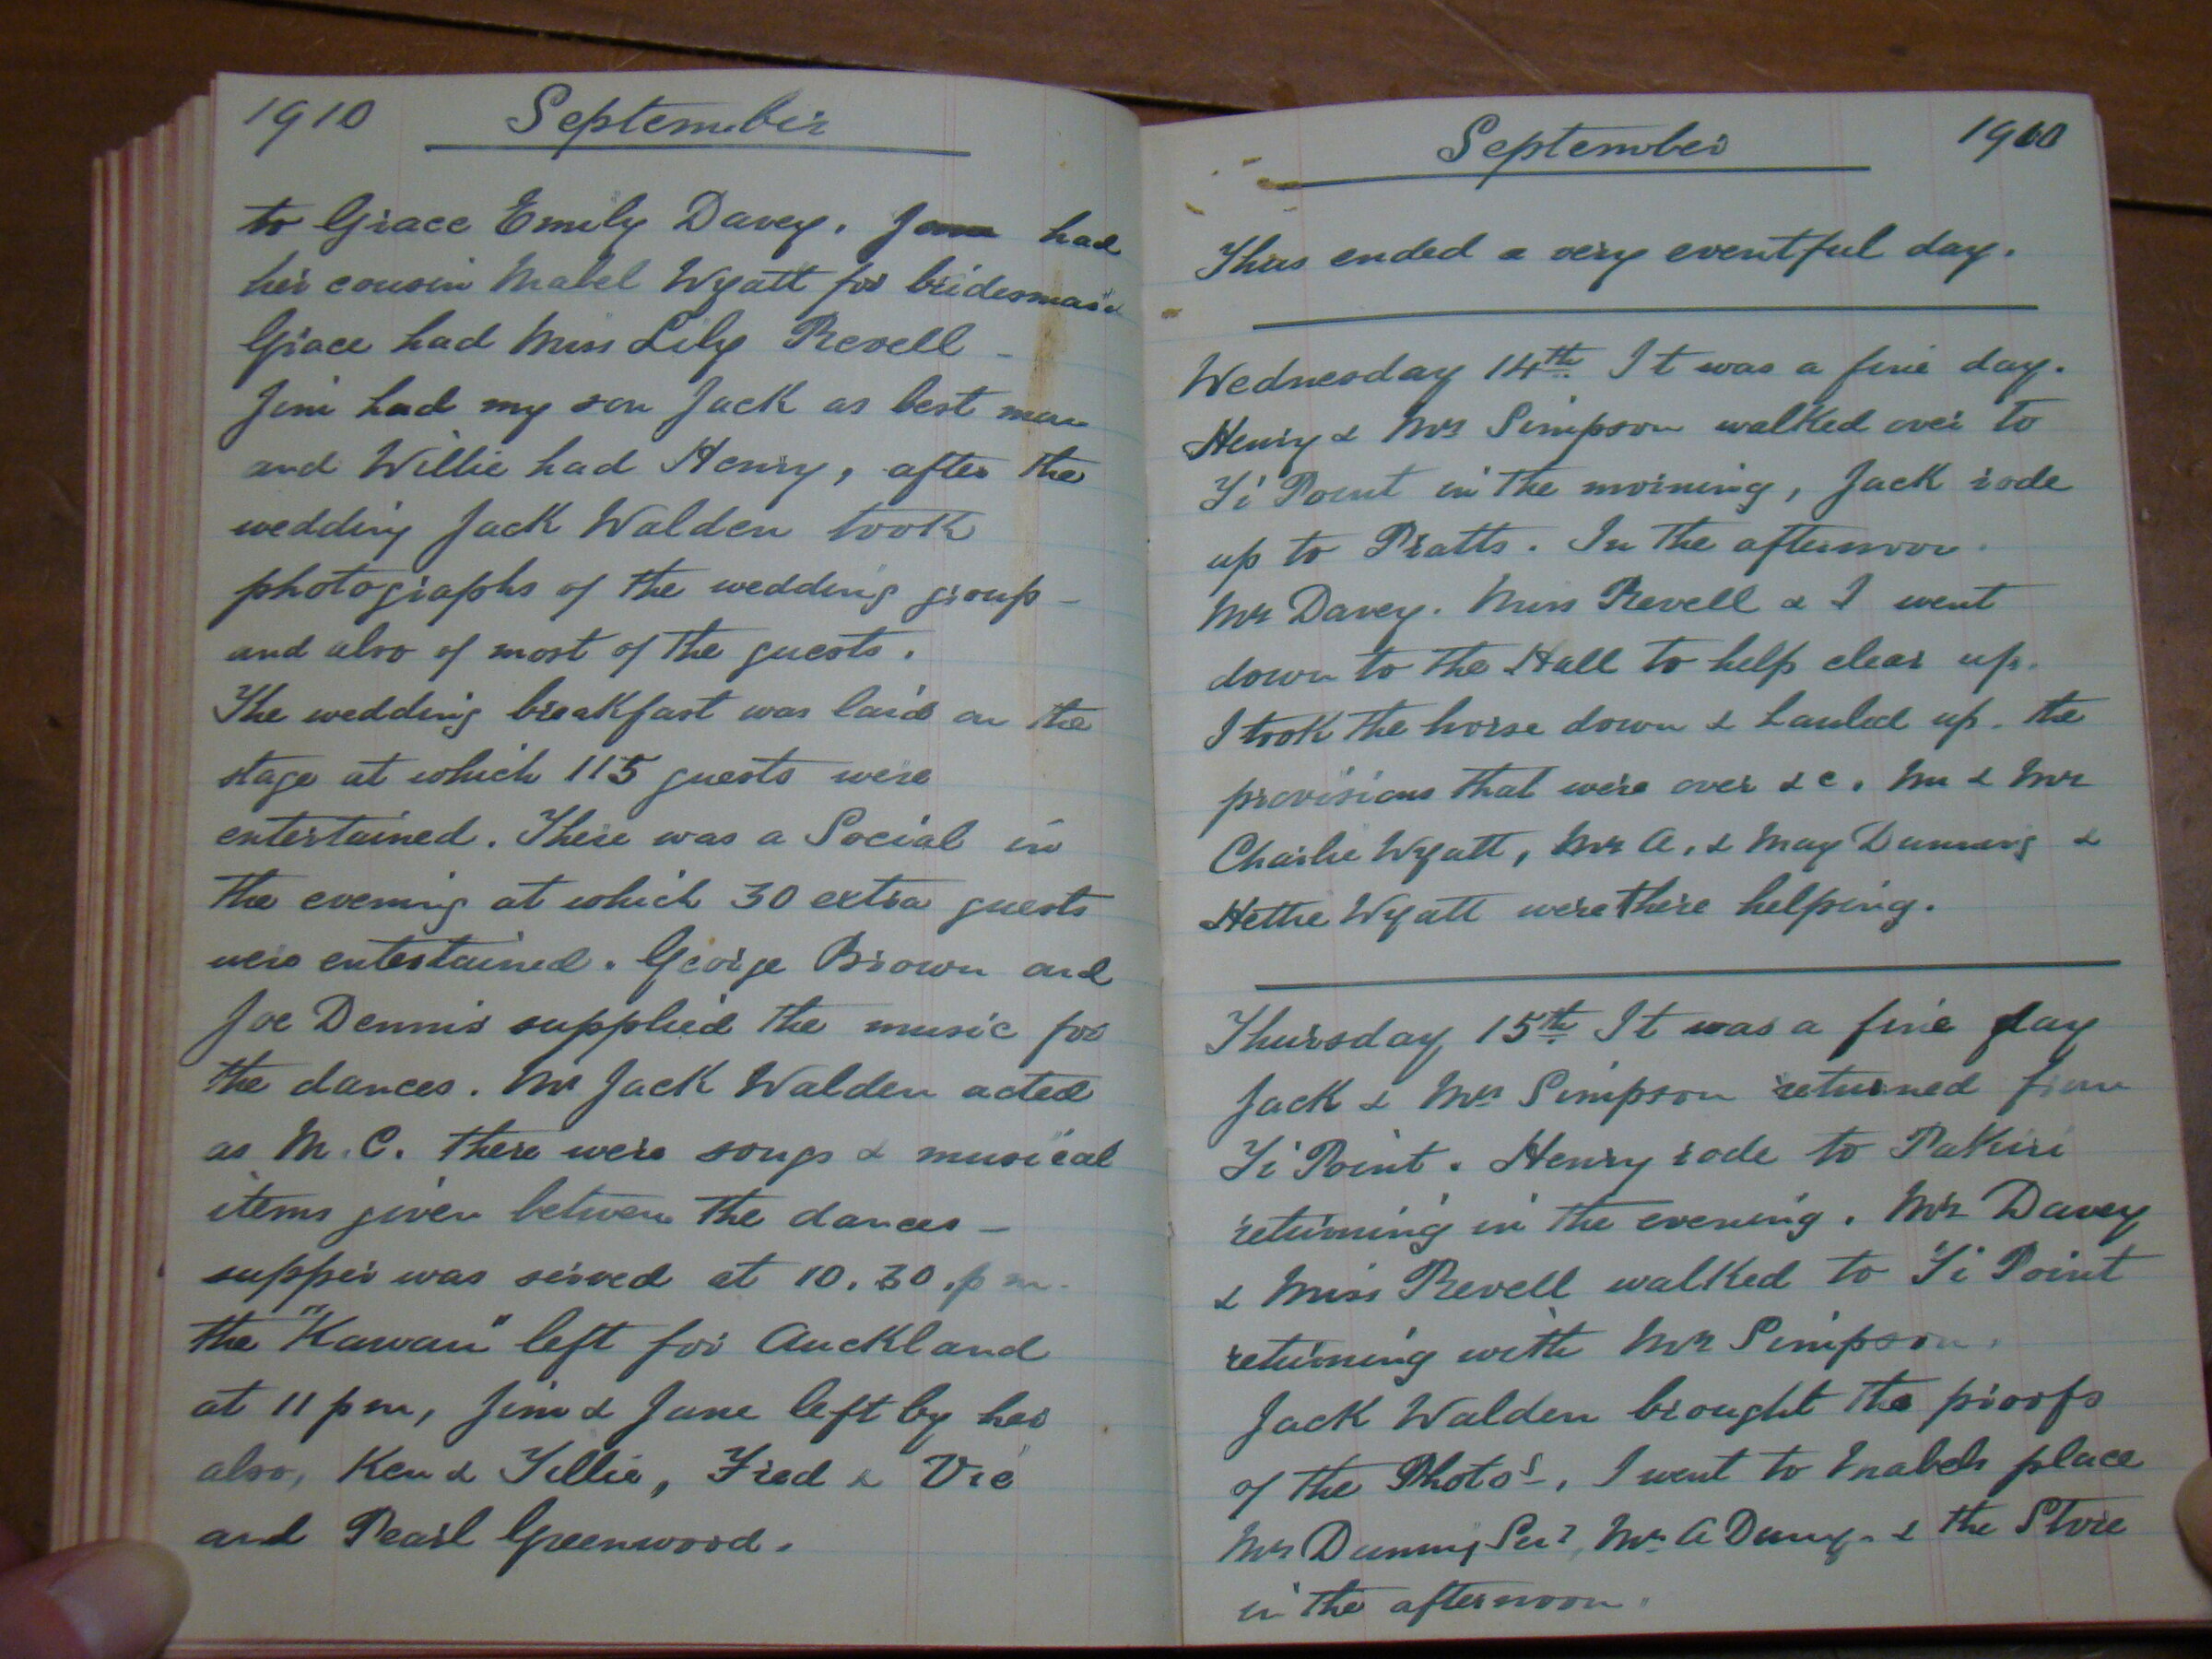 1910 September
to Grace Emily Davey. Jane had
her cousin Mabel Wyatt for bridesmaid
Grace had Miss Lily Revell -
Jim had my son Jack as best man
and Willie had Henry, after the
wedding Jack Walden took
photographs of the wedding group -
and also of most of the guests.
The wedding breakfast was laid on the
stage at which 115 guests were
entertained. There was a Social in
the evening at which 30 extra guests
were entertained. George Brown and
Joe Dennis supplied the music for
the dances. Mr Jack Walden acted
as M.C. there were songs & musical
items given between the dances -
supper was served at 10.30.p m.
the "Kawau" left for Auckland
at 11 pm, Jim & Jane left by her
also, Ken & Tillie, Fred & Vic
and Pearl Greenwood.
September 1910
Thus ended a very eventful day.
Wednesday 14th. It was a fine day.
Henry & Mrs Simpson walked over to
Ti Point in the morning, Jack rode
up to Pratts. In the afternoon
Mrs Davey. Miss Revell & I went
down to the Hall to help clear up.
I took the horse down & hauled up. the
provisions that were over &c. Mr & Mrs
Charlie Wyatt, Mrs A. & May Dunning &
Hettie Wyatt were there helping.
Thursday 15th. It was a fine day
Jack & Mrs Simpson returned from
Ti Point. Henry rode to Pakiri
returning in the evening. Mrs Davey
& Miss Revell walked to Ti Point
returning with Mrs Simpson.
Jack Walden brought the proofs
of the Photos, I went to Mabels place
Mrs Dunning Senr, Mrs A Dunng. & the Store
in the afternoon.